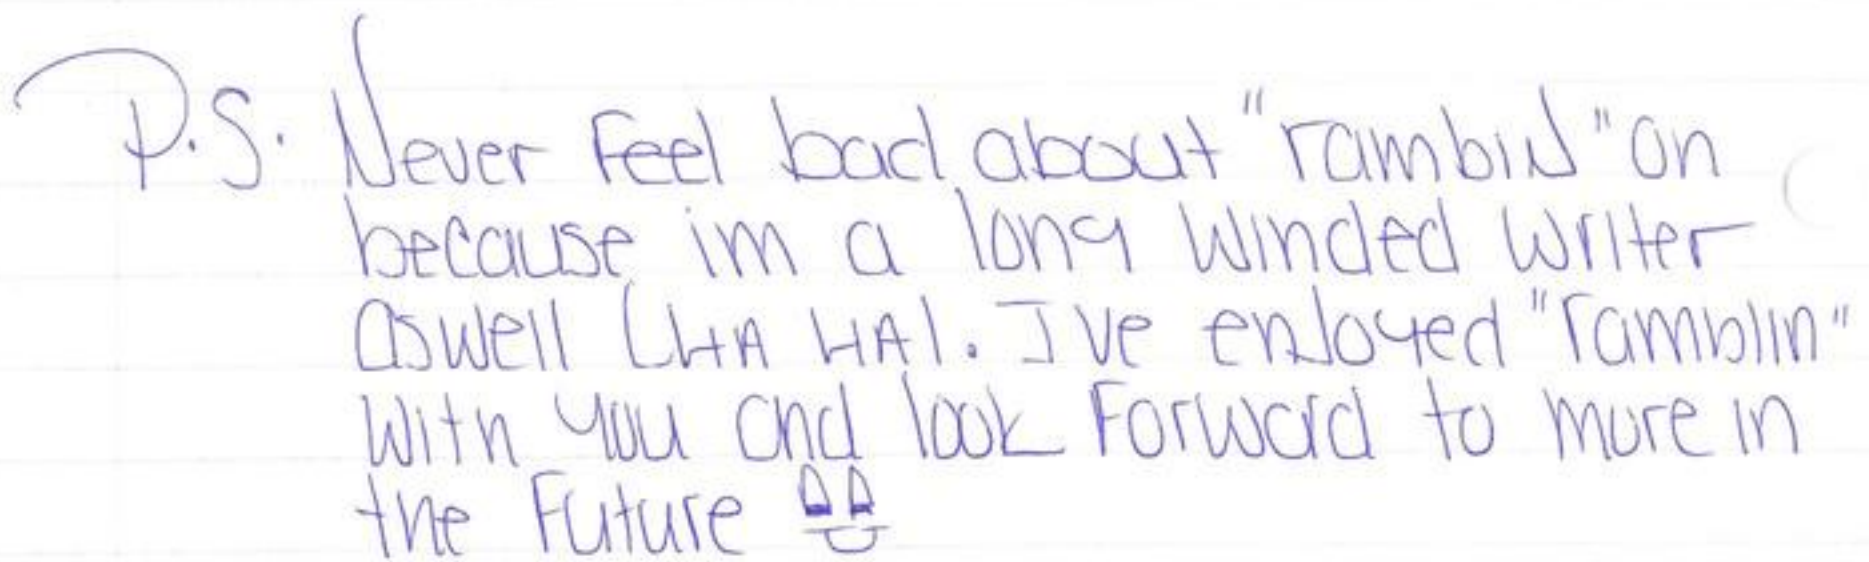 P.S. Never Feel bad about "rambiN" on
because im a long winded writer
aswell (HA HA). I've enjoyed "ramblin"
with you and look Forward to more in
the Future